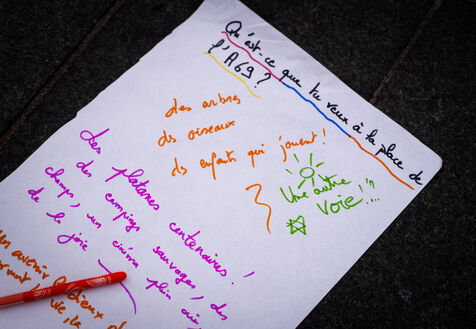 Qu'est-ce que tu veux à la place de
l'A69 ?
des arbres
ds oiseaux
ds enfants qui jouent !
Une autre
voie !
Des platanes centenaires !
des campings sauvages, des
champs, un cinéma plein air
de la joie
un avenir